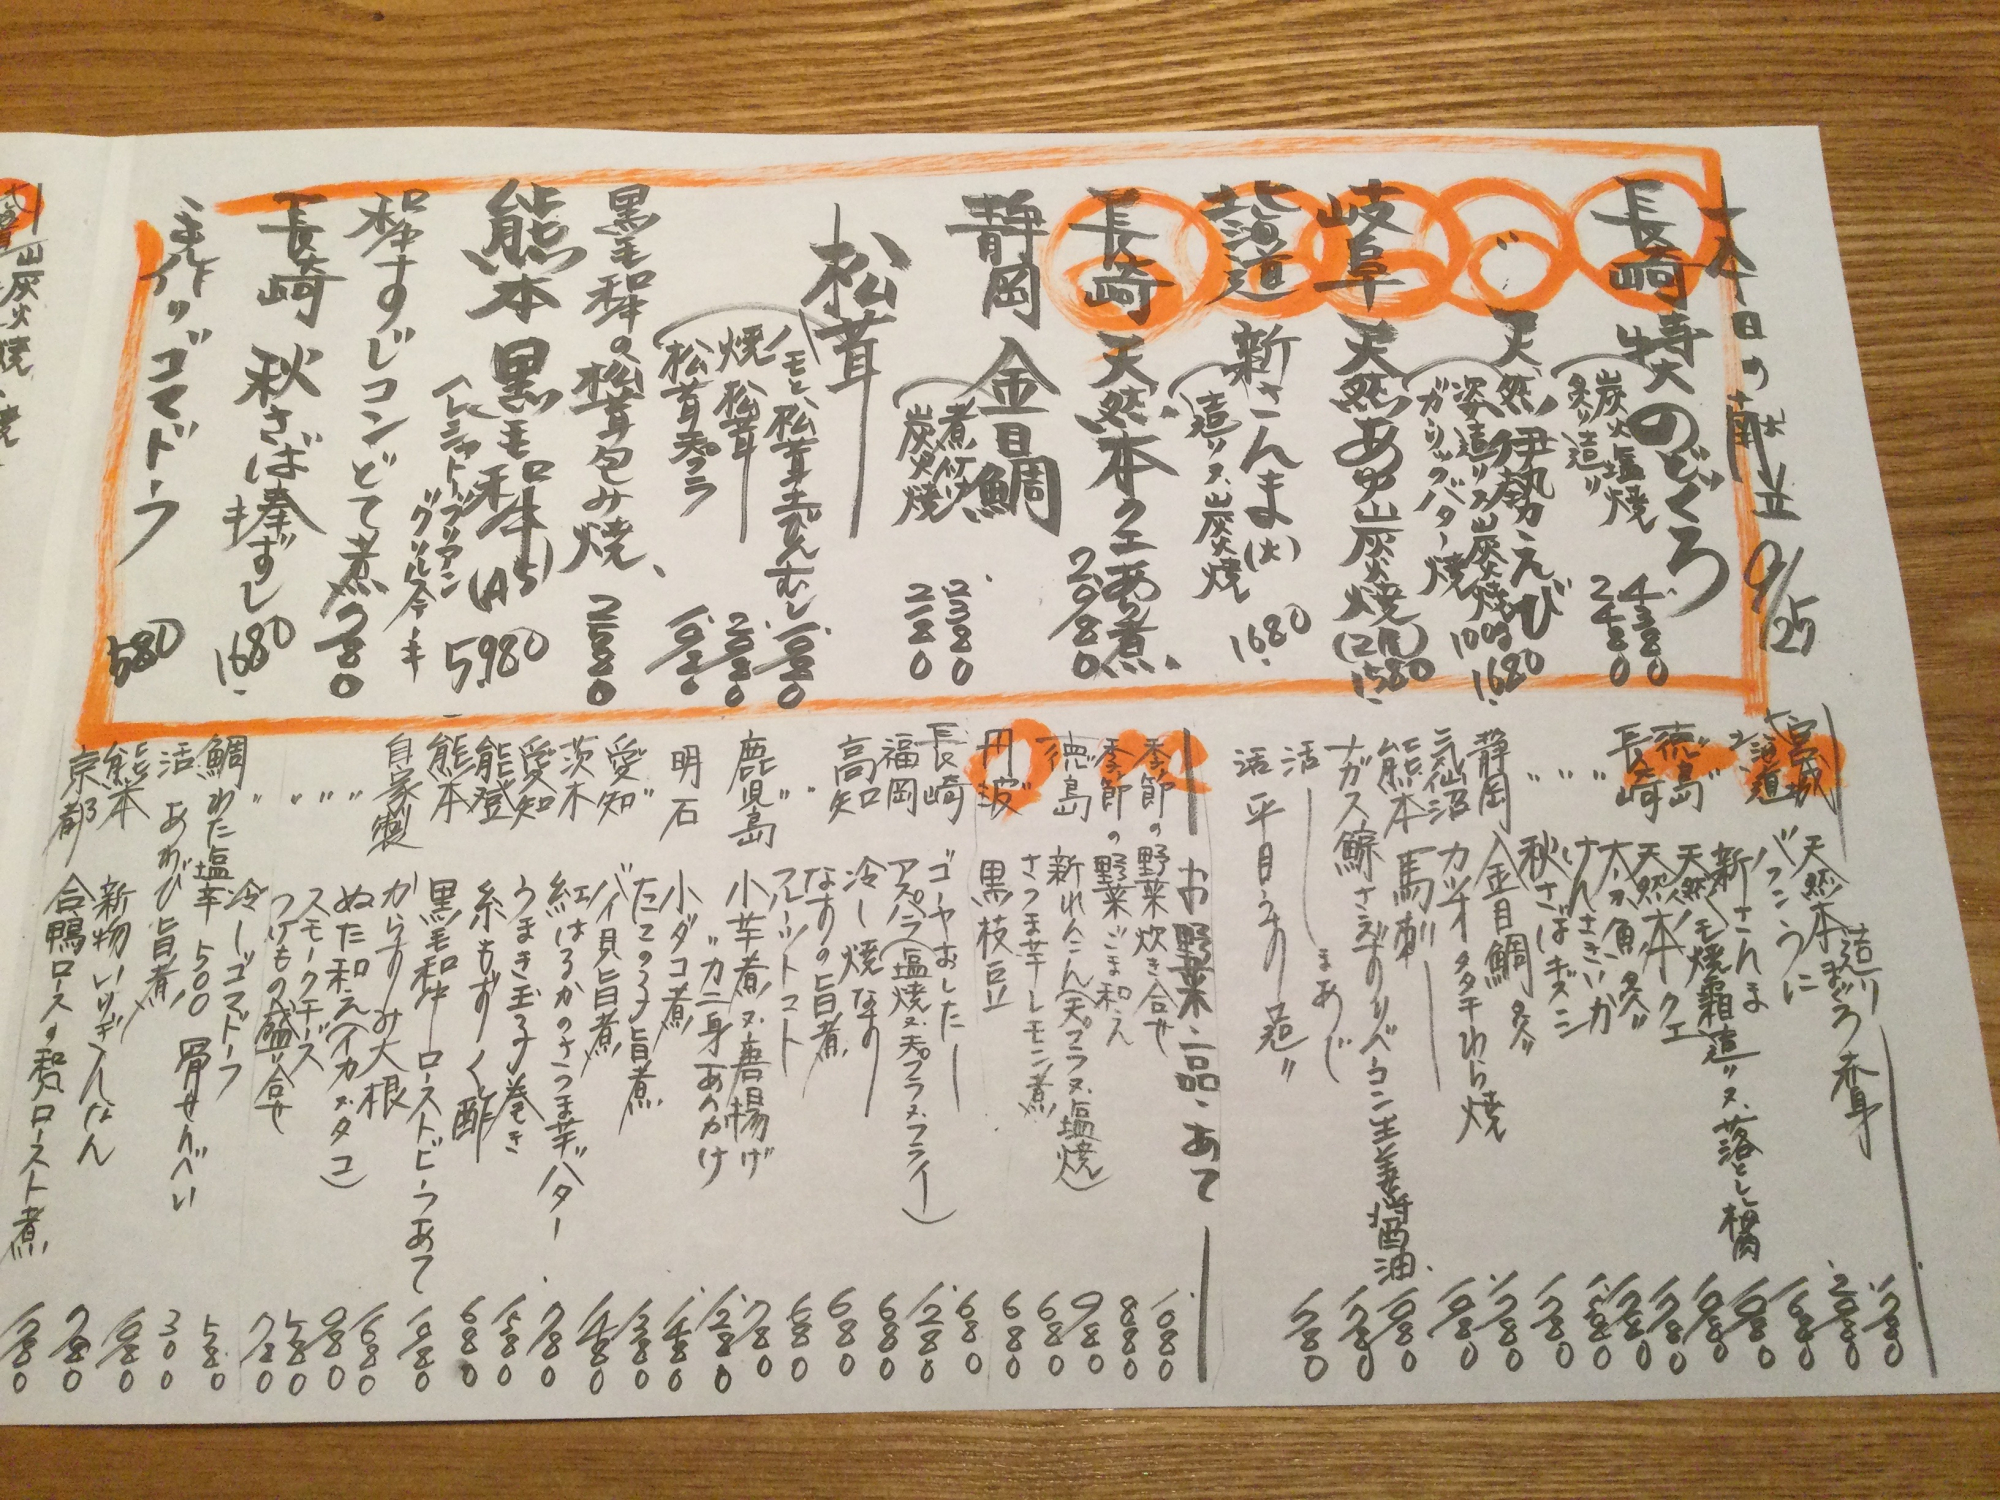 本日の献立 9/25
長崎 特大のどぐろ
炭火塩焼 4380
炙り造り 2480
〃 天然伊勢えび
姿造り又炭火焼 100g 1680
ガーリックバター焼
岐阜 天然あゆ炭火焼(2尾) 1580
北海道 新さんま(大)
造り又炭火焼 1680
長崎 天然本クエあら煮 2980
静岡 金目鯛
煮付け 2380
炭火焼 2180
松茸
モと松茸土びんむし 1080
焼松茸 2080
松茸天プラ 1080
黒毛和牛の松茸包み焼 2580
熊本 黒毛和牛(A5) 5980
シャトーブリアン
グリルステーキ
和牛すじコンどて煮 780
長崎 秋さば棒ずし 1680
イチゴマドーフ 580
造り
宮城 天然本まぐろ赤身 1780
北海道 バフンうに 2080
〃 新さんま
徳島 天然ハモ焼霜造り又落とし梅肉
長崎 天然本クエ
〃 太刀魚炙り
〃 けんさきいか
〃 秋さばキズシ
静岡 金目鯛炙り
気仙沼 カツオタタキわら焼
熊本 馬刺し 1080
ナガス鯨さえずりベーコン生姜醤油 1780
活 しまあじ
活 平目うす造り
お野菜・一品・あて
季節の野菜炊き合せ 1080
季節の野菜ごま和え 880
徳島 新れんこん(天プラ又塩焼) 980
〃 さつま芋レモン煮 680
丹波 黒枝豆 680
長崎 ゴーヤおひたし 680
福岡 アスパラ(塩焼又天プラ又フライ) 1280
高知 冷し焼なす 680
〃 なすの旨煮 680
〃 フルーツトマト 680
鹿児島 小芋煮又唐揚げ 780
〃 カニ身あんかけ 1280
明石 小ダコ煮 1480
〃 たこの子旨煮 1380
愛知 バイ貝旨煮 1480
茨木 紅はるかのさつま芋バター 780
愛知 うまき玉子巻き 1580
能登 糸もずく酢 680
熊本 黒毛和牛ローストビーフあて 1080
自家製 からすみ大根 680
〃 ぬた和え(イカ又タコ) 980
〃 スモークチーズ 580
〃 つけもの盛り合せ 780
〃 冷しゴマドーフ
鯛わた塩辛 500 骨せんべい 300
活 あわび旨煮
熊本 新物いりぎんなん 780
京都 合鴨ロースの和風ロースト煮 1380